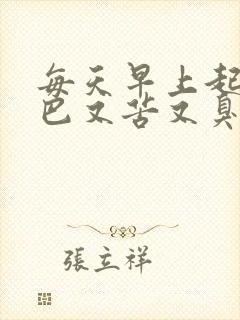 每天早上起
巴又苦又臭
張立祥